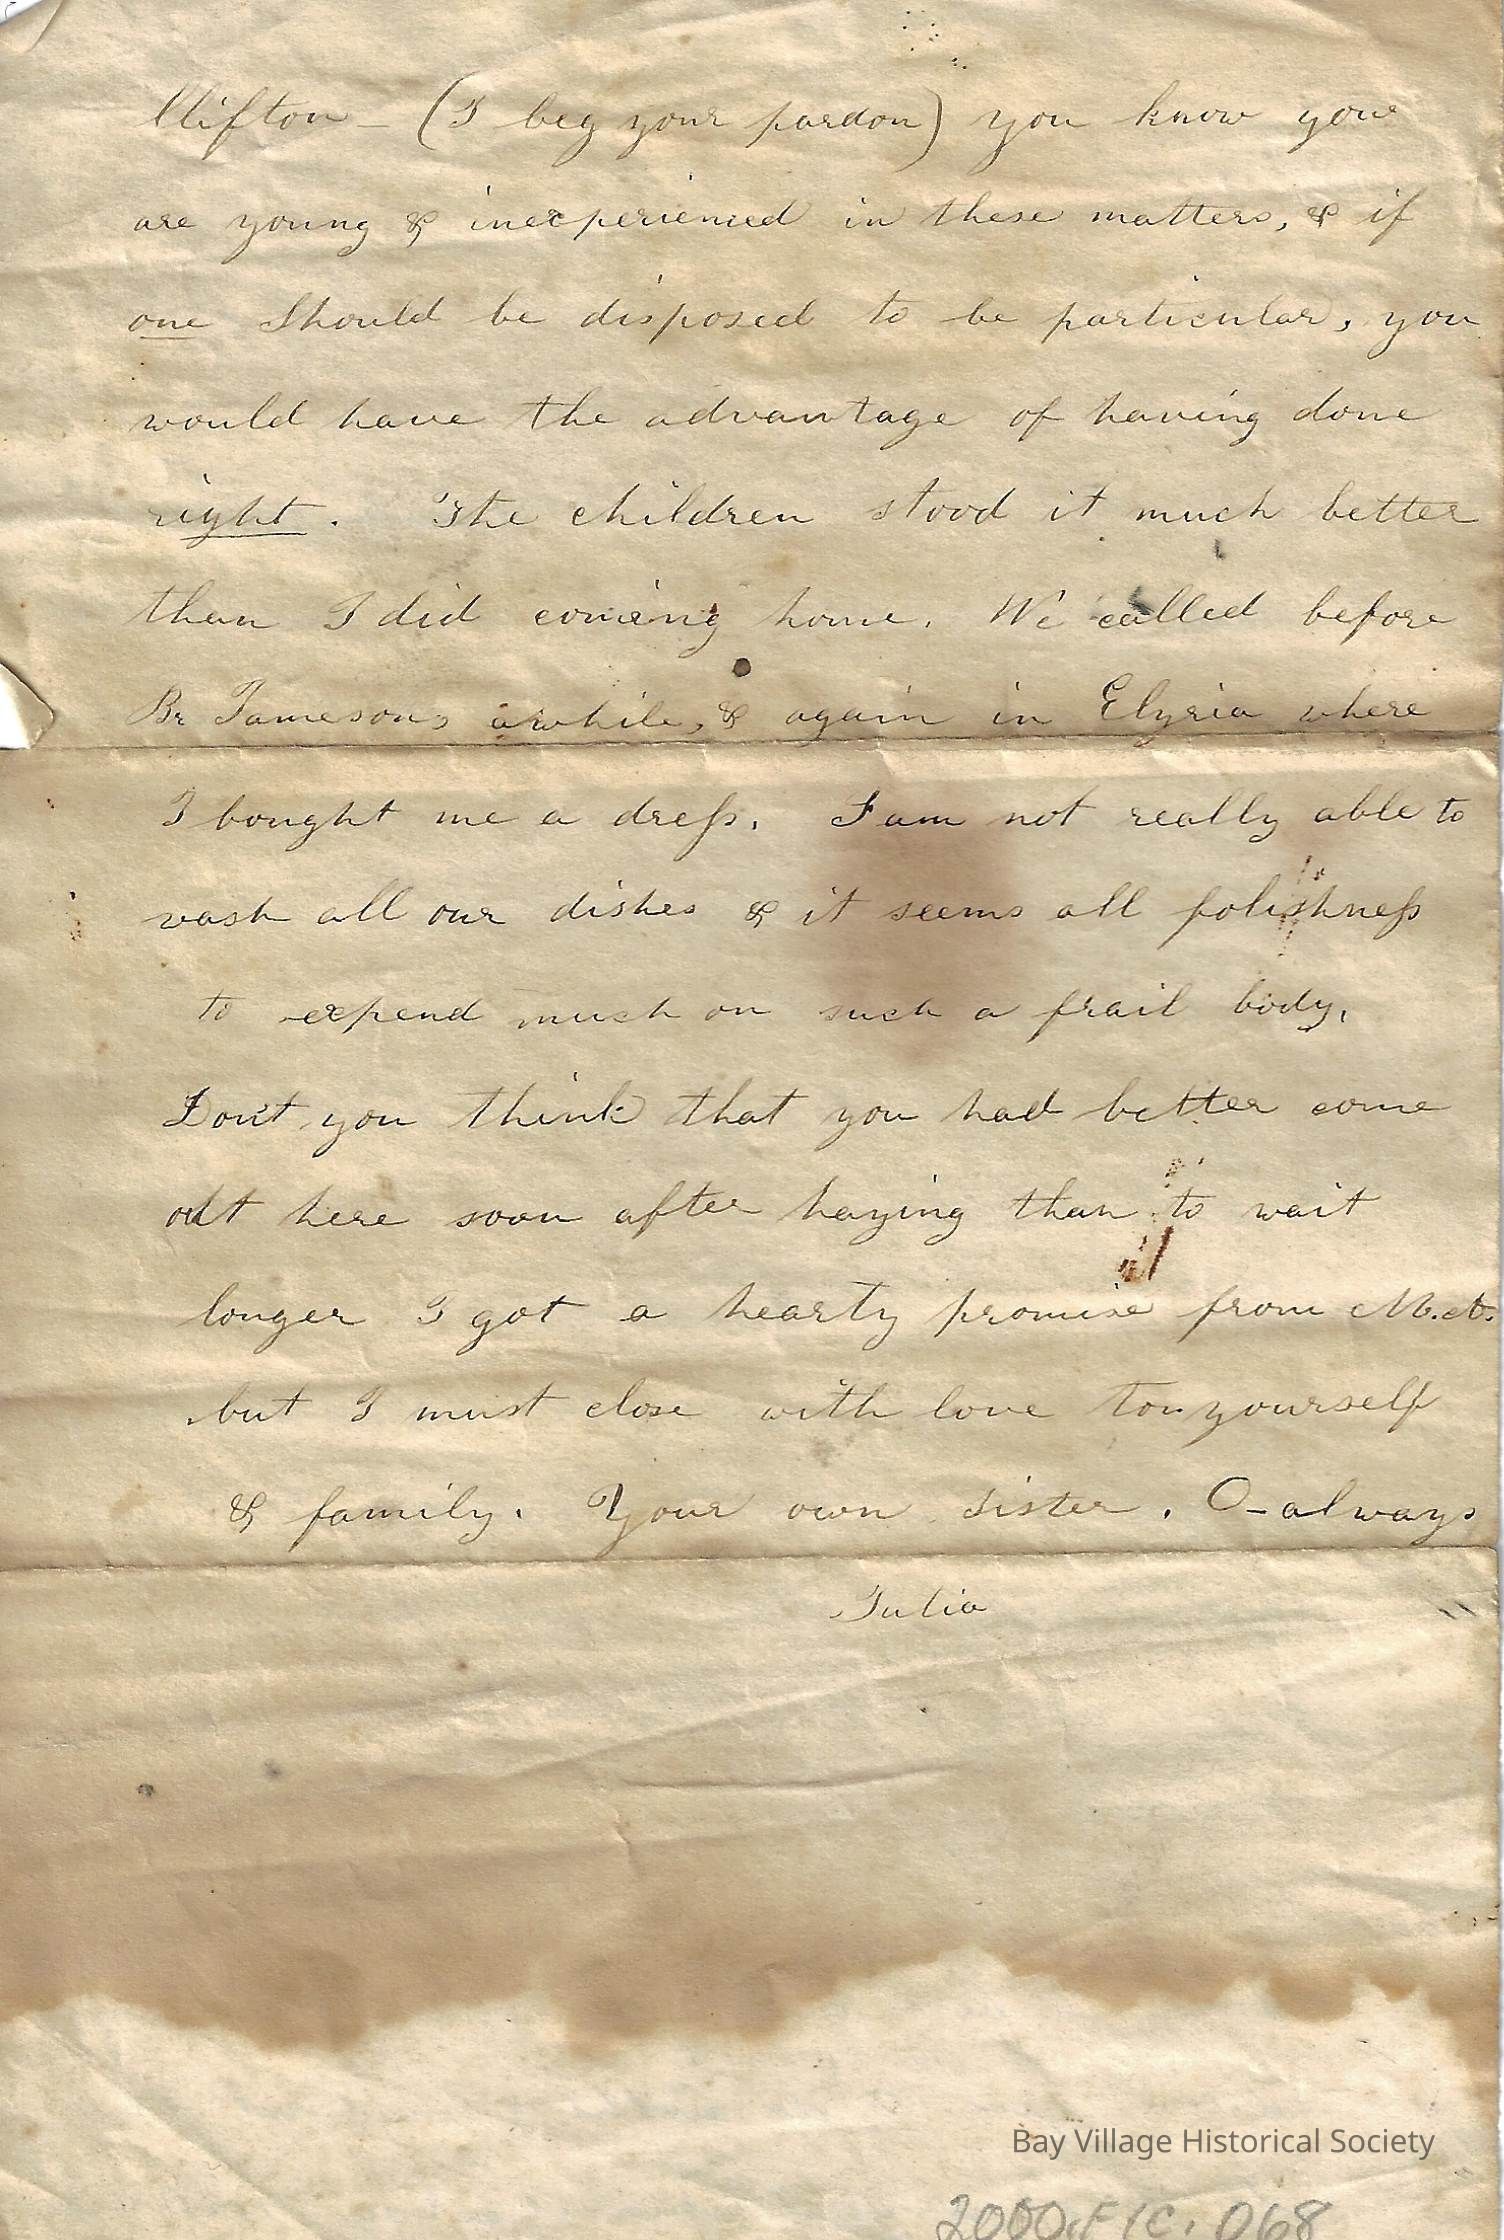 Clifton - (I beg your pardon) you know you
are young & inexperienced in these matters, & if
one should be disposed to be particular, you
would have the advantage of having done
right. The children stood it much better
than I did coming home. We called before
Br Jamesons awhile, & again in Elyria where
I bought me a dress. I am not really able to
wash all our dishes & it seems all folishness
to expend much on such a frail body.
Don't you think that you had better come
out here soon after haying than to wait
longer I got a hearty promise from M.A.
but I must close with love to yourself
& family. Your own sister. O-always
Julia
Bay Village Historical Society
2000.F1C.068